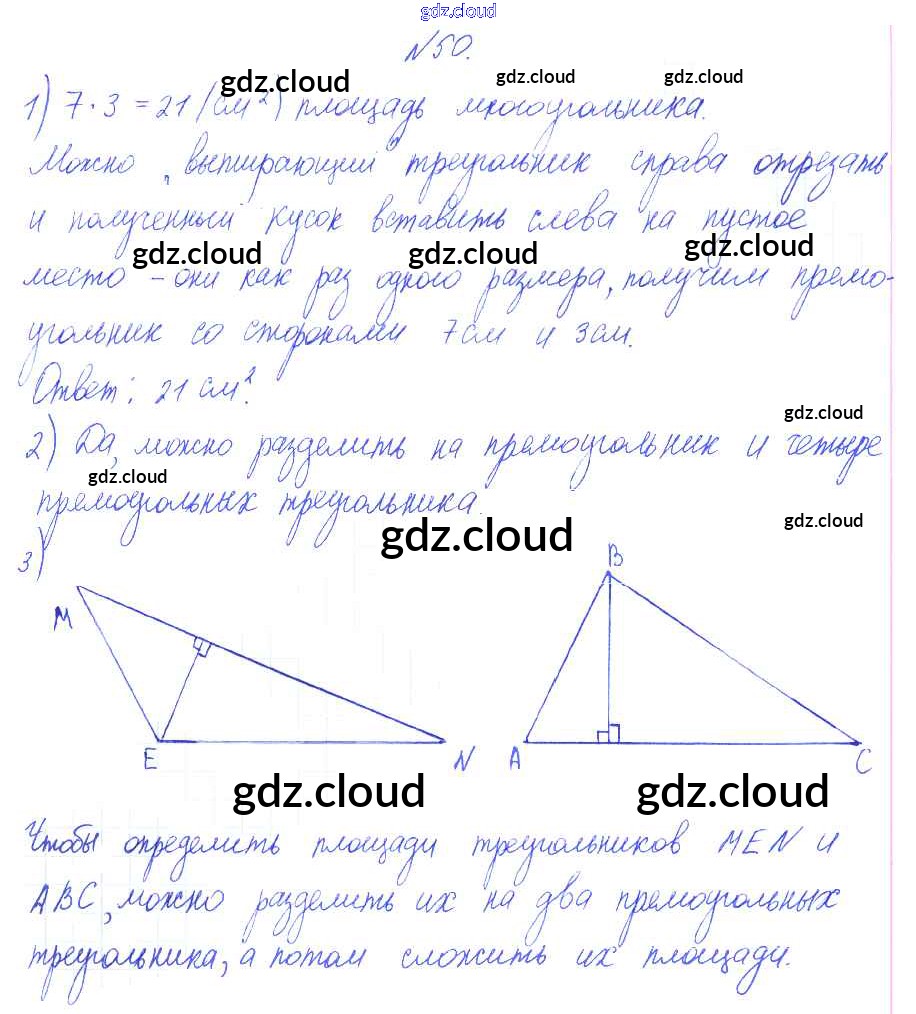 gdz.cloud
№50.
gdz.cloud gdz.cloud gdz.cloud
1) 7·3=21 (см²) площадь многоугольника.
Можно „выпирающий" треугольник справа отрезать
и полученный кусок вставить слева на пустое
gdz.cloud gdz.cloud gdz.cloud
место – они как раз одного размера, получим прямо-
угольник со сторонами 7см и 3см.
Ответ: 21 см².
gdz.cloud
2) Да, можно разделить на прямоугольник и четыре
gdz.cloud
прямоугольных треугольника.
gdz.cloud gdz.cloud
3)
B
M
E N A C
gdz.cloud gdz.cloud
Чтобы определить площади треугольников MEN и
ABC, можно разделить их на два прямоугольных
треугольника, а потом сложить их площади.